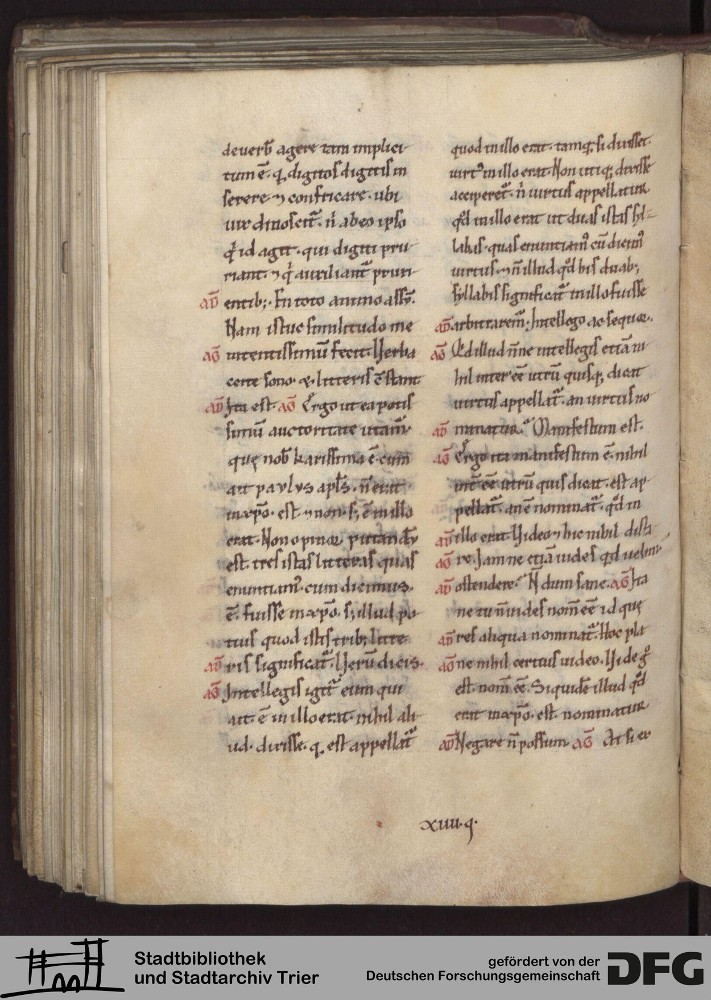 de verƀ agere tam implici
tum ē. q̄ digitos digitis in
serere ⁊ confricare. ubi
uix dinoscit᷑. n̄ ab eo ipso
q̄ id agit. qui digiti pru
riant. ⁊ q̄ auxiliant᷑ pruri
AD̄ entib;. En toto animo assū.
Nam istuc similitudo me
AG̅ intentissimū fecit. Uerba
certe sono. & litteris c̄stant
AD̄ Ita est. AG̅ Ergo ut ea potis
simū auctoritate utam᷑
quę nob̄ karissima ē. cum
ait paulus apls̄. n̄ erat
in xp̄o. est. ⁊ non. s; ē in illo
erat. Non opinor putandū
est. tres istas litteras quas
enuntiam᷒ cum dicimus.
ē. fuisse in xp̄o. s; illud po
tius quod istis trib; litte
AD̄ ris significat᷑. Uerū dicis.
AG̅ Intellegis igit᷑ eum qui
ait. ē in illo erat. nihil ali
ud dixisse. q̄ est appellat᷑
quod in illo erat. tamq; si dixisset.
uirt᷒ in illo erat. Non utiq; dixisse
acciperet᷑. n̄ uirtus appellatur
qd̄ in illo erat ut duas istas syl-
labas. quas enuntiam᷒ cū dicim᷒
uirtus. ⁊ n̄ illud qd̄ his duab;
syllabis significat᷑ in illo fuisse
AD̄ arbitrarem᷑. Intellego ac sequor.
AG̅ Qd̄ illud n̄ne intellegis etiā ni
hil inter eē utrū quisq; dicat
uirtus appellat᷑. an uirtus no
AD̄ minatur. Manifestum est.
AG̅ Ergo ita manifestum ē. nihil
int̄ eē utrū quis dicat. est ap
pellat᷑. an ē nominat᷑. qd̄ in
AD̄ illo erat. Uideo ⁊ hic nihil dista
AG̅ re. Iamne etiā uides qd̄ uelim
AD̄ ostendere. N̄ dum sane. AG̅ Ita
ne tu n̄ uides nom̄ eē id quę
AD̄ res aliqua nominat᷑. Hoc pla
AG̅ ne nihil certius uideo. Uides g̊
est. nom̄ eē. Siquidē illud qd̄
erat in xp̄o. est. nominatur
AD̄ Negare n̄ possum. AG̅ At si er
xuii. q.
Stadtbibliothek
und Stadtarchiv Trier
gefördert von der
Deutschen Forschungsgemeinschaft
DFG